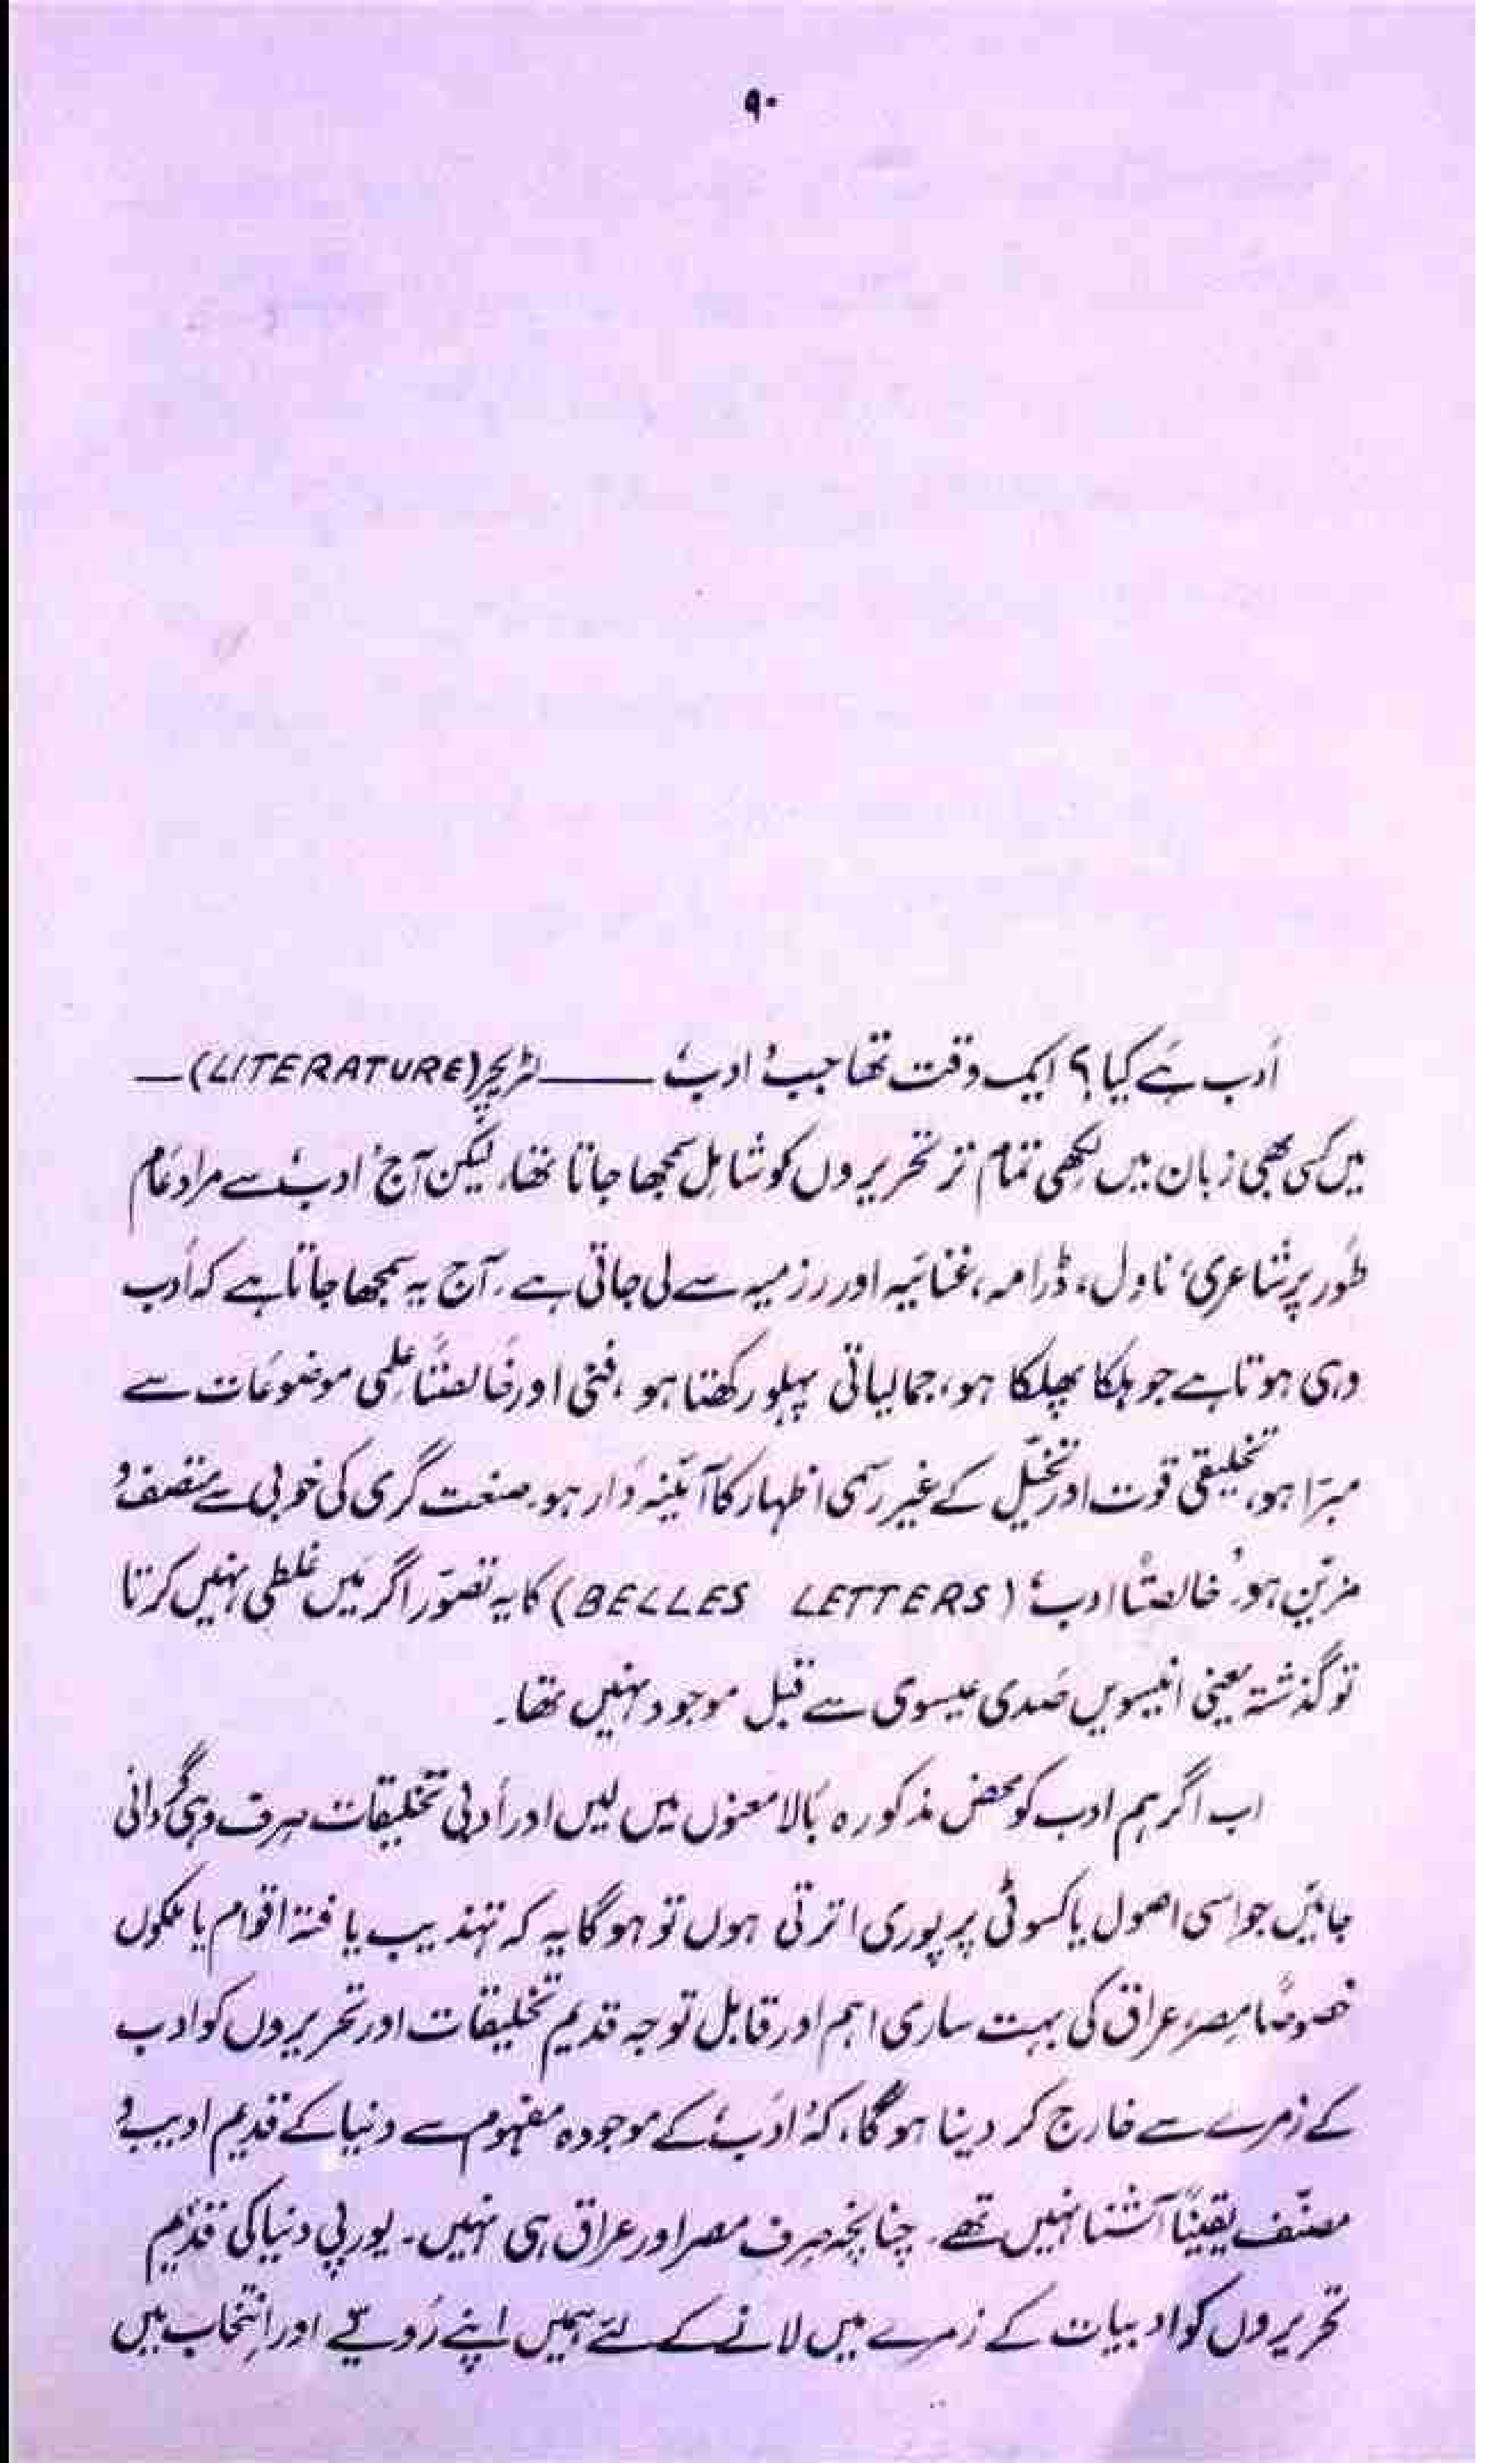 ۹۰
اَدب ہے کیا؟ ایک وقت تھا جب 'ادب' ——— لٹریچر (LITERATURE) —
میں کسی بھی زبان میں لکھی تمام تر تحریروں کو شامل سمجھا جاتا تھا، لیکن آج 'ادب' سے مراد عام
طور پر شاعری، ناول، ڈرامہ، غنائیہ اور رزمیہ سے لی جاتی ہے۔ آج یہ سمجھا جاتا ہے کہ اَدب
وہی ہوتا ہے جو ہلکا پھلکا ہو، جمالیاتی پہلو رکھتا ہو، فنی اور خالصتاً علمی موضوعات سے
مبرّا ہو، تخلیقی قوت اور تخیّل کے غیر رسمی اظہار کا آئینہ دار ہو۔ صنعت گری کی خوبی سے متصف و
مزین ہو۔ 'خالصتاً ادب' (BELLES LETTERS) کا یہ تصوّر اگر میں غلطی نہیں کرتا
تو گذشتہ یعنی انیسویں صَدی عیسوی سے قبل موجود نہیں تھا۔
اب اگر ہم ادب کو محض مذکورہ بالا معنوں میں لیں اور اَدبی تخلیقات صِرف وہی گردانی
جائیں جو اسی اصول یا کسوٹی پر پوری اترتی ہوں تو ہوگا یہ کہ تہذیب یافتہ اقوام یا ملکوں
خصوصاً مِصر، عراق کی بہت ساری اہم اور قابل توجہ قدیم تخلیقات اور تحریروں کو ادب
کے زمرے سے خارج کر دینا ہوگا، کہ 'ادَب' کے موجودہ مفہوم سے دنیا کے قدیم ادیب و
مصنّف یقیناً آشنا نہیں تھے۔ چنانچہ صِرف مصر اور عراق ہی نہیں۔ یورپی دنیا کی قدیم
تحریروں کو ادبیات کے زمرے میں لانے کے لئے ہمیں اپنے رَویّے اور اِنتخاب میں